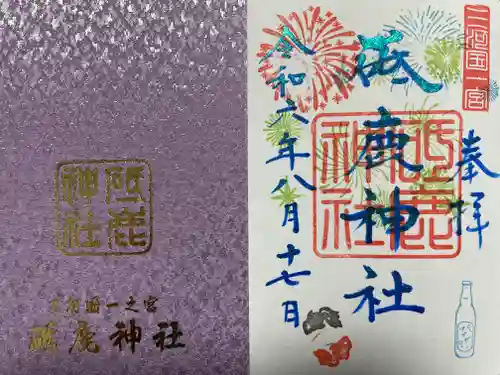 砥鹿
神社
三河國一之宮
砥鹿神社
三河国一宮
奉拝
砥鹿神社
砥鹿
神社
令和六年八月十七日